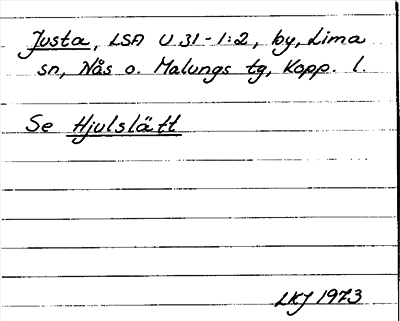 Justa, LSA U 31-1:2, by, Lima
sn, Nås o. Malungs tg, Kopp. l.
Se Hjulslätt
LKJ 1973